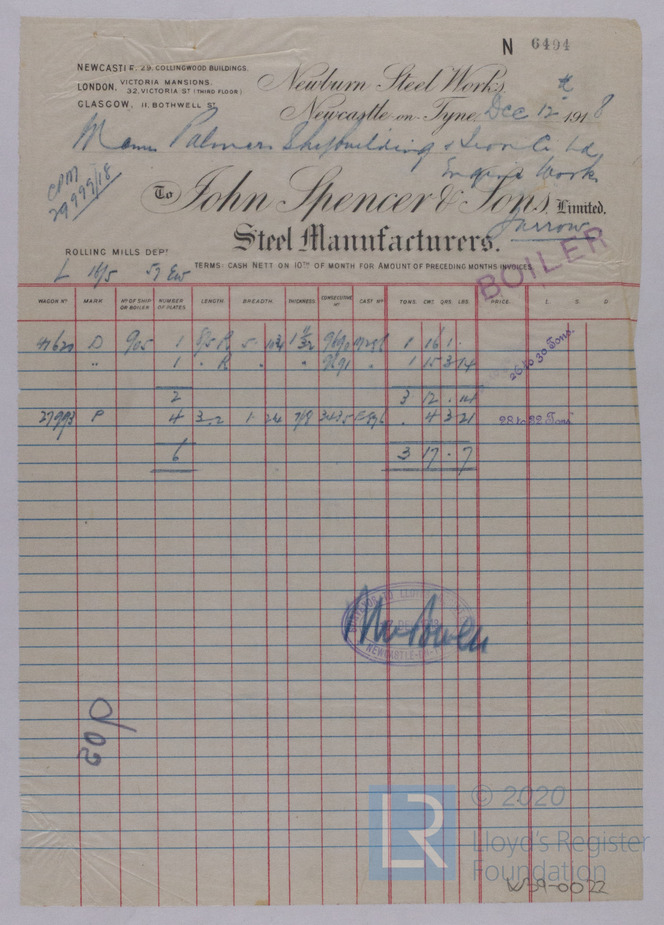 N 6494
NEWCASTLE, 29, COLLINGWOOD BUILDINGS.
LONDON, VICTORIA MANSIONS, 32, VICTORIA ST (THIRD FLOOR)
GLASGOW, 11, BOTHWELL ST
Newburn Steel Works,
Newcastle-on-Tyne, Dec 12th 1918
Messrs Palmers Shipbuilding & Iron Co Ld
Engine Works
Jarrow
CPM
29999/18
To John Spencer & Sons, Limited.
Steel Manufacturers.
ROLLING MILLS DEPT
TERMS: CASH NETT ON 10TH OF MONTH FOR AMOUNT OF PRECEDING MONTHS INVOICES.
BOILER
WAGON No MARK No OF SHIP OR BOILER NUMBER OF PLATES LENGTH. BREADTH. THICKNESS. CONSECUTIVE No CAST No TONS. CWT. QRS. LBS. PRICE. £. S. D.
D 905 1 1 16 1 .
" 1 . R " " " 1 15 3 14
26 to 30 Tons.
2 3 12 . 14
27993 P 4 3 . 2 1 7/8 . 4 3 21 28 to 32 Tons
6 3 17 . 7
NEWCASTLE-ON-
902
LR
© 2020
Lloyd's Register
Foundation
W39-0022